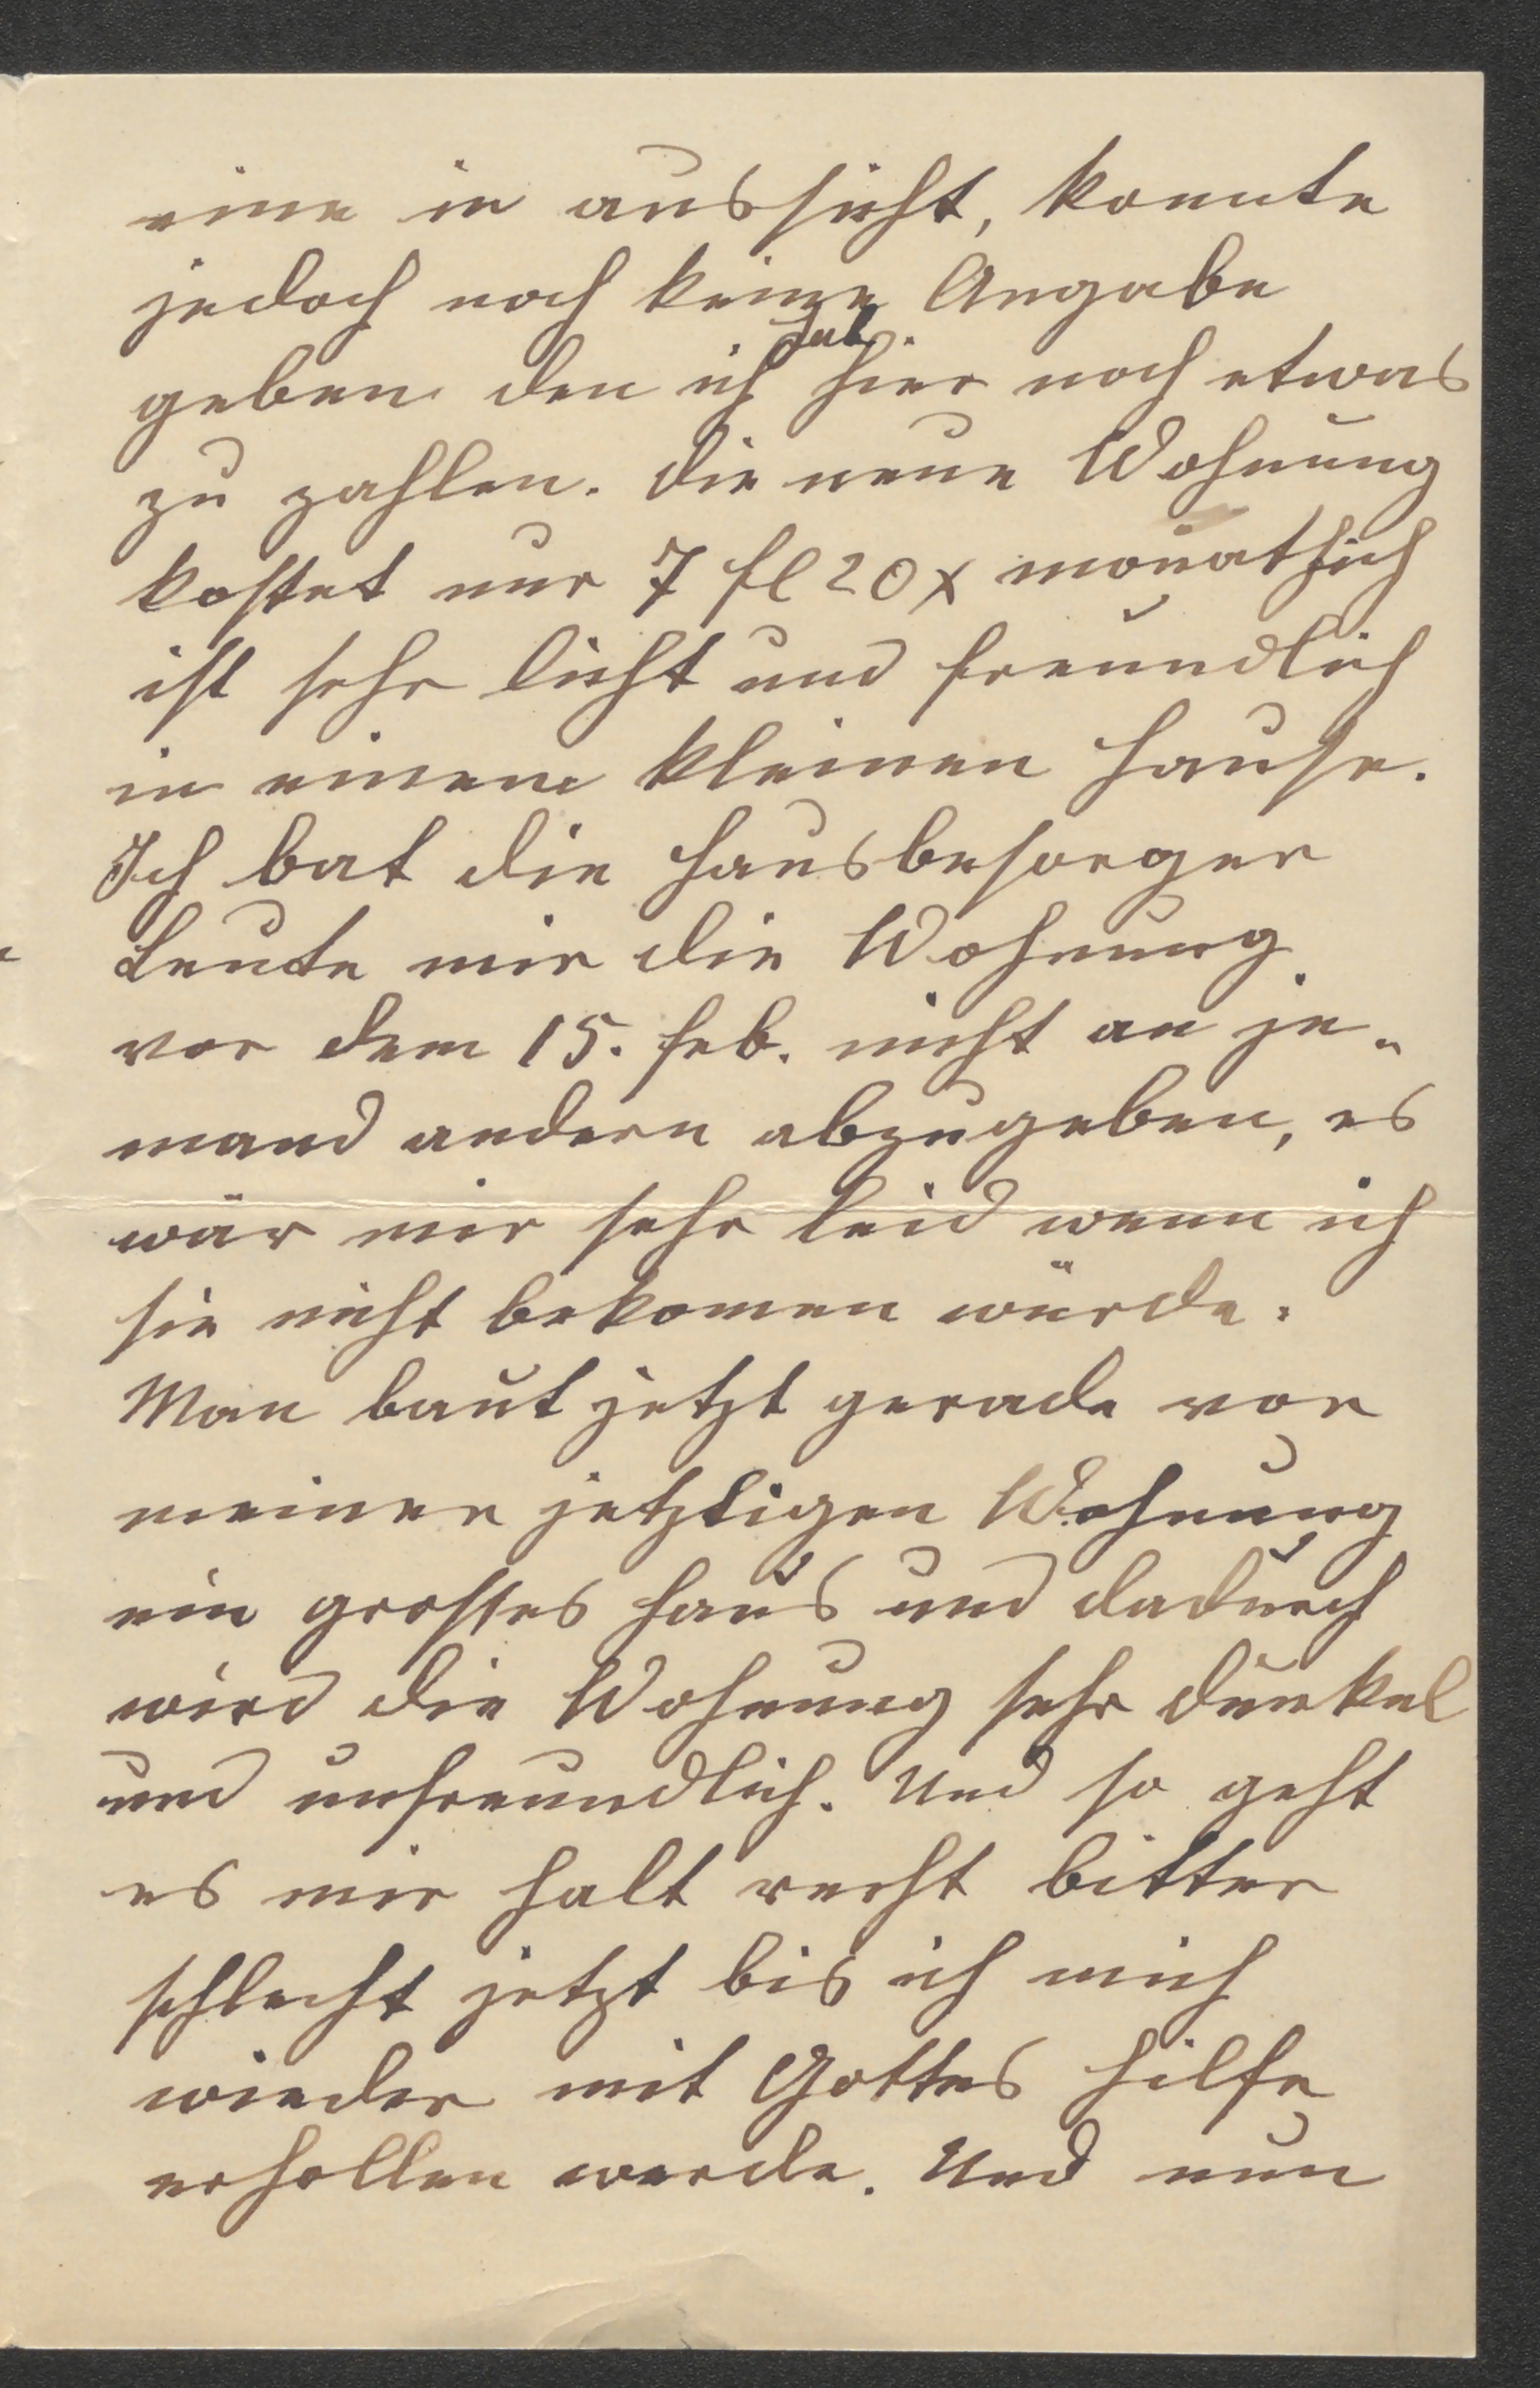 eine in aussicht, konnte
jedoch noch keine Angabe
geben den ich hab hier noch etwas
zu zahlen. die neue Wohnung
kostet nur 7 fl 20 x monatlich
ist sehr licht und freundlich
in einem kleinen Hause.
Ich bat die Hausbesorger
Leute mir die Wohnung
vor dem 15. Feb. nicht an je„
mand andern abzugeben, es
wär mir sehr leid wenn ich
sie nicht bekomen würde.
Man baut jetzt gerade vor
meiner jetztigen Wohnung
ein grosses Haus und dadurch
wird die Wohnung sehr dunkel
und unfreundlich. Und so geht
es mir halt recht bitter
schlecht jetzt bis ich mich
wieder mit Gottes Hilfe
erhollen werde. Und nun